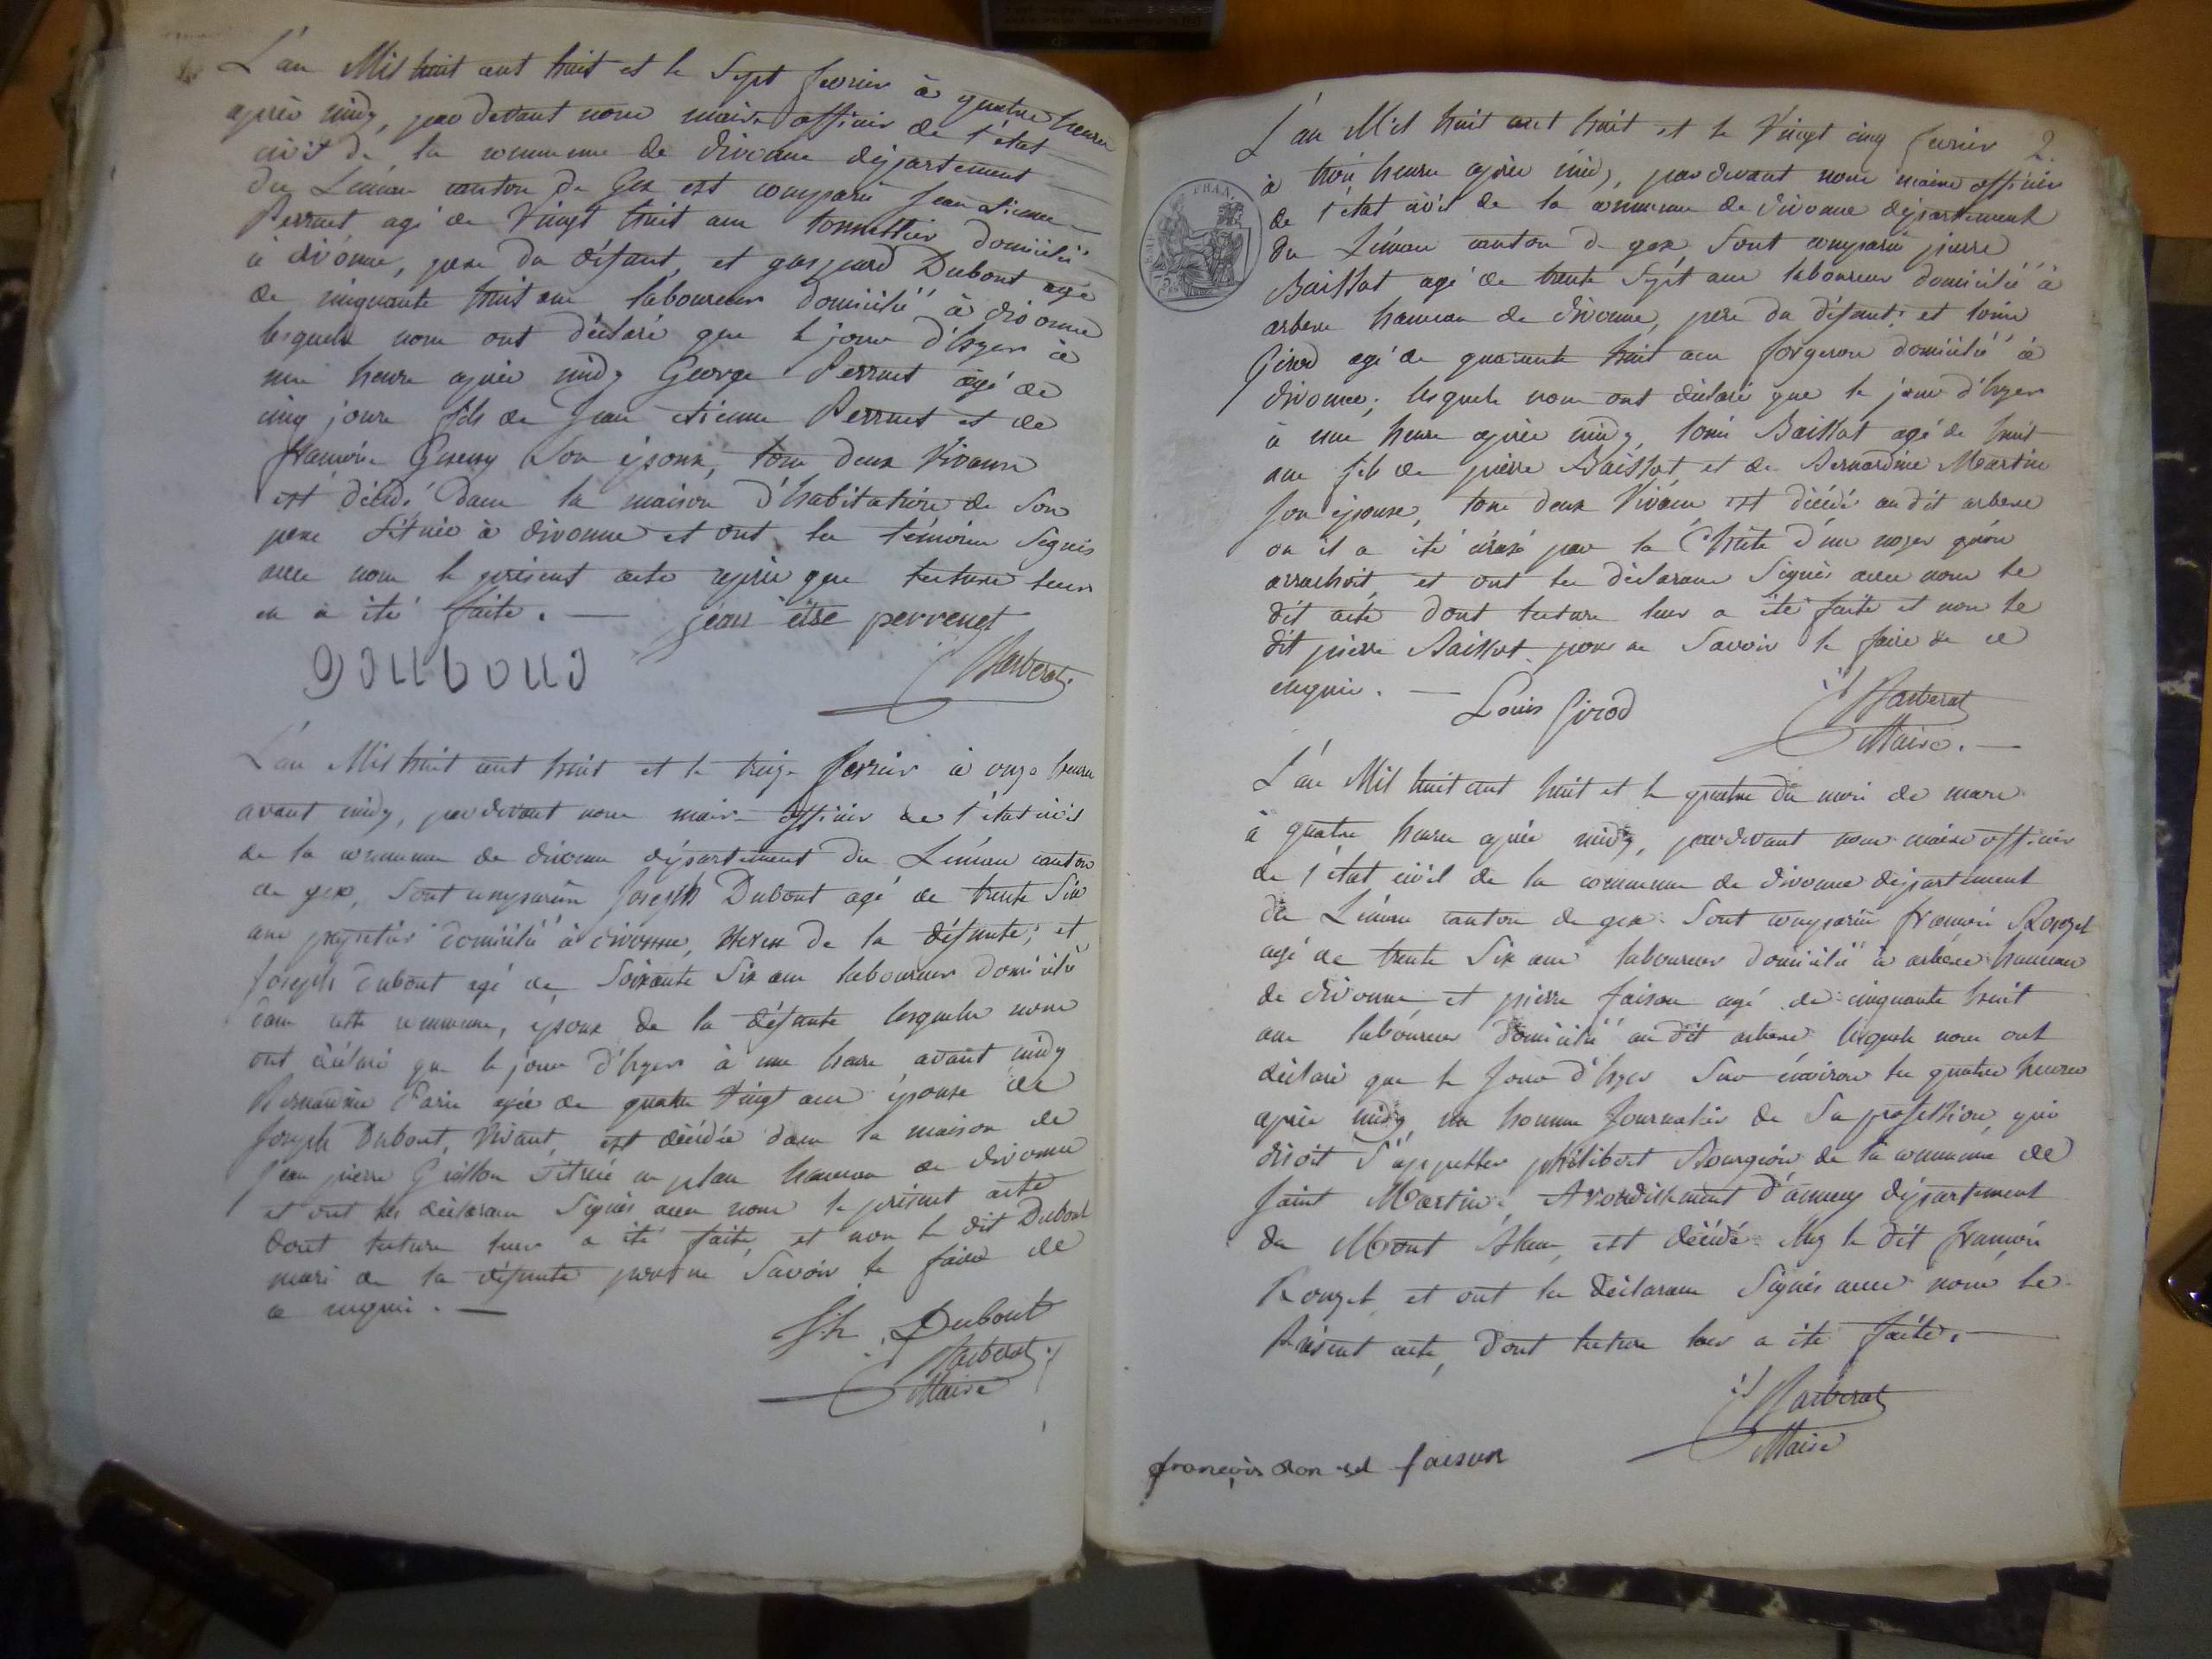 L'an Mil huit cent huit et le Sept fevrier à quatre heures
après midy, par devant nous maire officier de l'état
civil de la commune de divonne département
du Léman canton de Gex est comparu Jean etienne
Perrnet agé de Vingt huit ans tonnellier domicilié
à divonne, pere du défunt, et gaspard Dubout agé
de cinquante huit ans laboureur domicilié à divonne
lesquels nous ont déclaré que le jour d'hyer à
une heure après midy George Perrnet agé de
cinq jours fils de Jean etienne Perrnet et de
françoise son épouse, tous deux Vivans
est décédé dans la maison d'habitation de Son
pere Située à divonne et ont les témoins Signés
avec nous le présent acte après que lecture leur
en a été faite. — jean etse perrenet
Barberat
L'an Mil huit cent huit et le treize fevrier à onze heures
avant midy, pardevant nous maire officier de l'état civil
de la commune de divonne département du Léman canton
de gex, Sont comparûs Joseph Dubout agé de trente Six
ans domicilié à divonne, neveu de la défunte; et
Joseph dubout agé de Soixante Six ans laboureur domicilié
dans cette commune, epoux de la défunte lesquels nous
ont déclaré que le jour d'hyer à une heure avant midy
Bernardine Paris agée de quatre Vingt ans épouse de
Joseph Dubout, Vivant, est décédée dans la maison de
Jean pierre Située au plan hameau de divonne
et ont les déclarans Signés avec nous le présent acte
dont lecture leur a été faite, et non le dit Dubout
mari de la défunte pour ne Savoir le faire de
ce enquis. —
Jh. Dubout
Barberat
Maire
2.
L'an Mil huit cent huit et le Vingt cinq fevrier
à trois heures après midy, pardevant nous maire officier
de l'état civil de la commune de divonne département
du Léman canton de gex, Sont comparûs pierre
Baissat agé de trente Sept ans laboureur domicilié à
arbere hameau de divonne, pere du défunt; et louis
Girod agé de quarante huit ans forgeron domicilié à
divonne; lesquels nous ont déclaré que le jour d'hyer
à une heure après midy, louis Baissat agé de huit
ans fils de pierre Baissat et de Bernardine Martin
Son épouse, tous deux Vivans est décédé au dit arbere
ou il a été écrasé par la Chûte d'un noyer qu'on
arrachoit, et ont les déclarans Signés avec nous le
dit acte dont lecture leur a été faite et non le
dit pierre Baissat pour ne Savoir le faire de ce
enquis. —
Louis Girod
Barberat
Maire. —
L'an Mil huit cent huit et le quatre du mois de mars
à quatre heures après midy, pardevant nous maire officier
de l'état civil de la commune de divonne département
du Léman canton de gex. Sont comparûs françois Rouget
agé de trente Six ans laboureur domicilié à arbere hameau
de divonne, et pierre faison agé de cinquante huit
ans laboureur domicilié au dit arbere lesquels nous ont
déclaré que le Jour d'hyer Sur environ les quatre heures
après midy un homme Journalier de Sa profession, qui
disoit S'appeller philibert Bourgeois de la commune de
Saint Martin, Arrondissement d'annecy département
du Mont Blanc, est décédé chez le dit françois
Rouget et ont les déclarans Signés avec nous le
Présent acte, dont lecture leur a été faite. —
Barberat
Maire